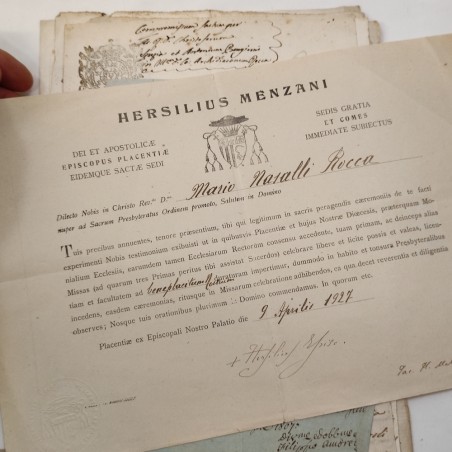 HERSILIUS MENZANI
DEI ET APOSTOLICÆ
EPISCOPUS PLACENTIÆ
EIDEMQUE SACTÆ SEDI
SEDIS GRATIA
ET COMES
IMMEDIATE SUBIECTUS
Dilecto Nobis in Christo Rev.° D.° Mario Nasalli Rocca
nuper ad Sacrum Presbyteratus Ordinem promoto, Salutem in Domino
Tuis precibus annuentes, tenore præsentium, tibi qui legitimum in sacris peragendis cæremoniis de te facti
experimenti Nobis testimonium exibuisti ut in quibusvis Placentiæ et hujus Nostræ Diœcesis, præsertim Mo-
nialium Ecclesiis, earumdem tamen Ecclesiarum Rectorum consensu accedente, tuam primam, ac deinceps alias
Missas (ad quarum tres Primas peritus tibi assistat Sacerdos) celebrare libere et licite possis et valeas, licen-
tiam et facultatem ad beneplacitum Nostrum duraturam impertimur, dummodo in habitu et tonsura Presbyteralibus
incedens, easdem cæremonias, ritusque in Missarum celebratione adhibendos, ea qua decet reverentia et diligentia
observes; Nosque tuis orationibus plurimum in Domino commendamus. In quorum etc.
Placentiæ ex Episcopali Nostro Palatio die 9 Aprilis 1927
+ Hersilius